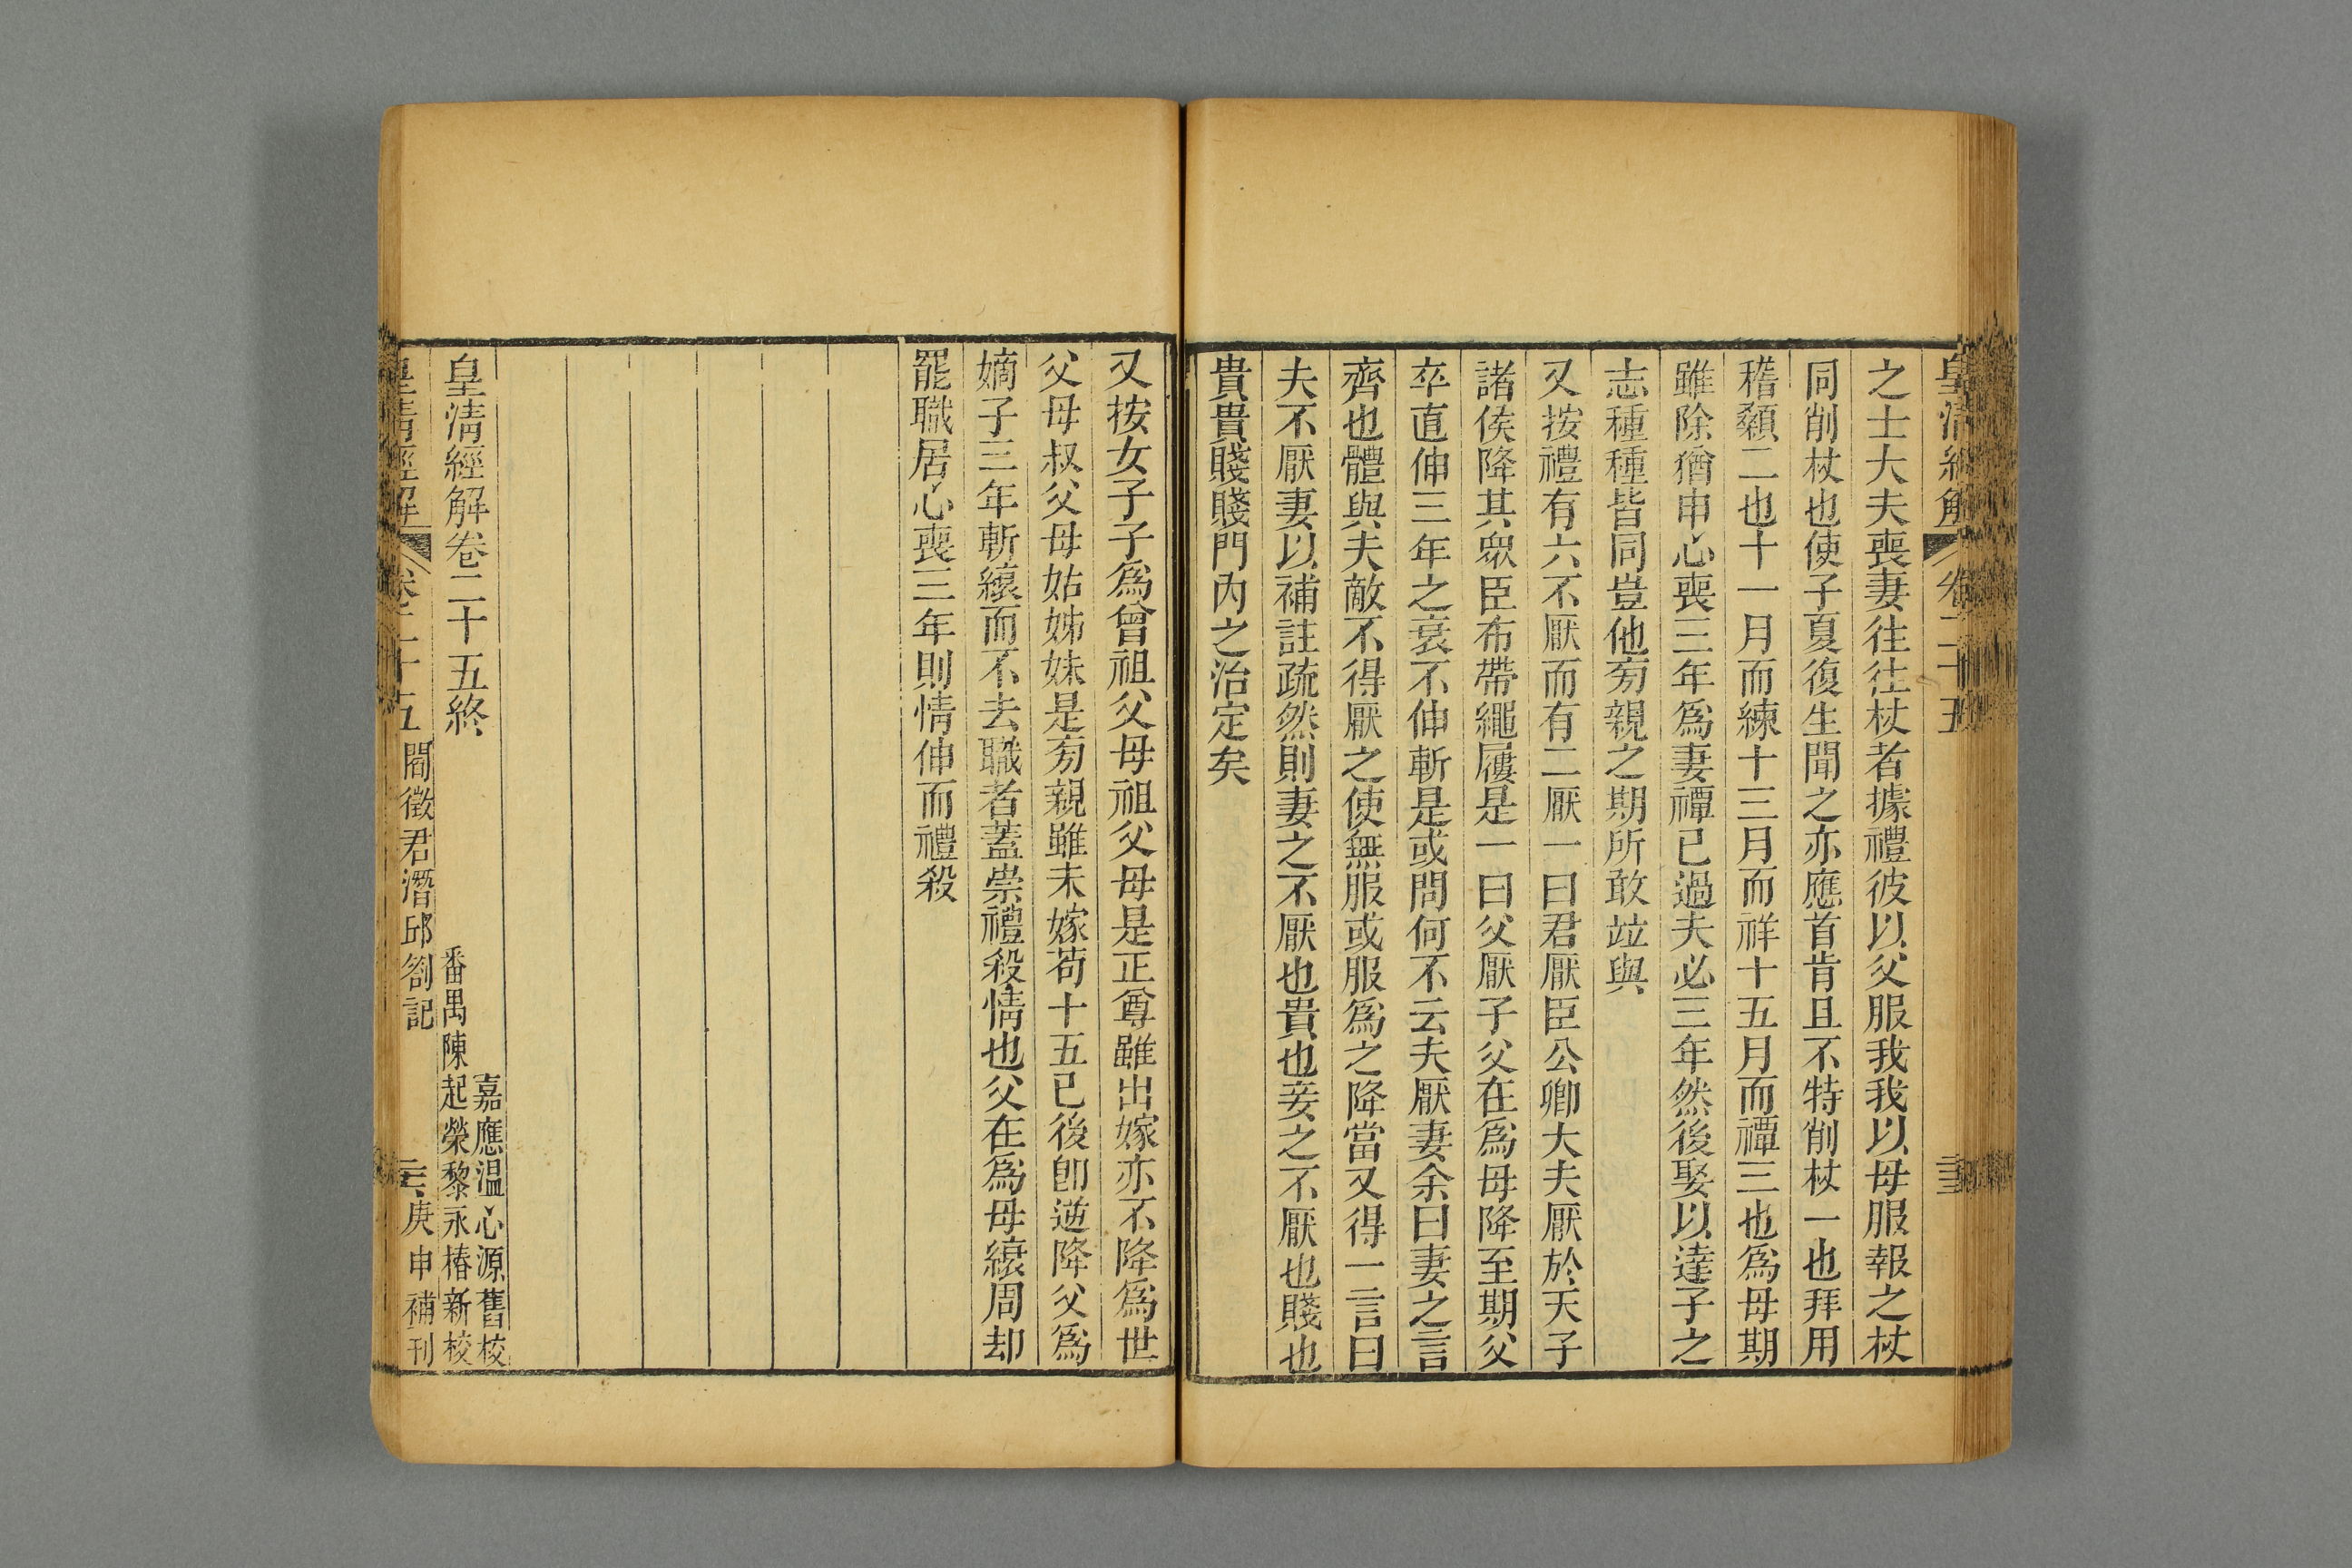 皇清經解 卷二十五
之士大夫喪妻往往杖者據禮彼以父服我我以母服報之杖
同削杖也使子夏復生聞之亦應首肯且不特削杖一也拜用
稽顙二也十一月而練十三月而祥十五月而禫三也爲母期
雖除猶申心喪三年爲妻禫已過夫必三年然後娶以達子之
志種種皆同豈他旁親之期所敢竝與
又按禮有六不厭而有二厭一曰君厭臣公卿大夫厭於天子
諸侯降其眾臣布帶繩屨是一曰父厭子父在爲母降至期父
卒直伸三年之衰不伸斬是或問何不云夫厭妻余曰妻之言
齊也體與夫敵不得厭之使無服或服爲之降當又得一言曰
夫不厭妻以補註疏然則妻之不厭也貴也妾之不厭也賤也
貴貴賤賤門內之治定矣
又按女子子爲曾祖父母祖父母是正尊雖出嫁亦不降爲世
父母叔父母姑姊妹是旁親雖未嫁苟十五已後卽逆降父爲
嫡子三年斬縗而不去職者蓋崇禮殺情也父在爲母縗周却
罷職居心喪三年則情伸而禮殺
皇清經解卷二十五終
嘉應溫心源舊校
番禺陳起榮黎永椿新校
皇清經解 卷二十五 閻徵君潛邱劄記 庚申補刊